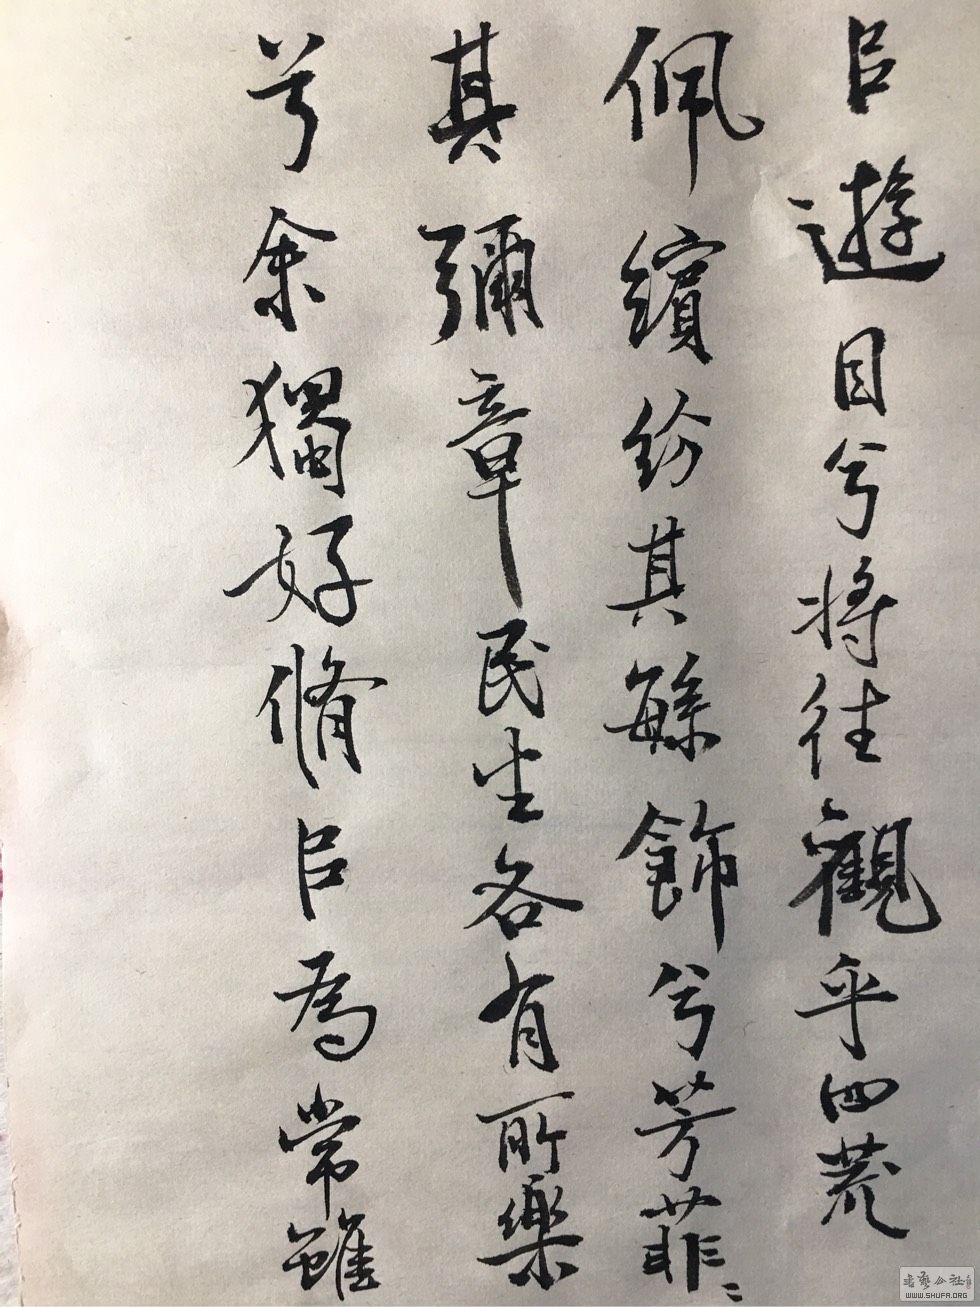 㠯遊目兮將往觀乎四荒
佩繽紛其繇飾兮芳菲〻
其彌章民生各有所樂
兮余獨好脩㠯為常雖
书艺公社
WWW.SHUFA.ORG